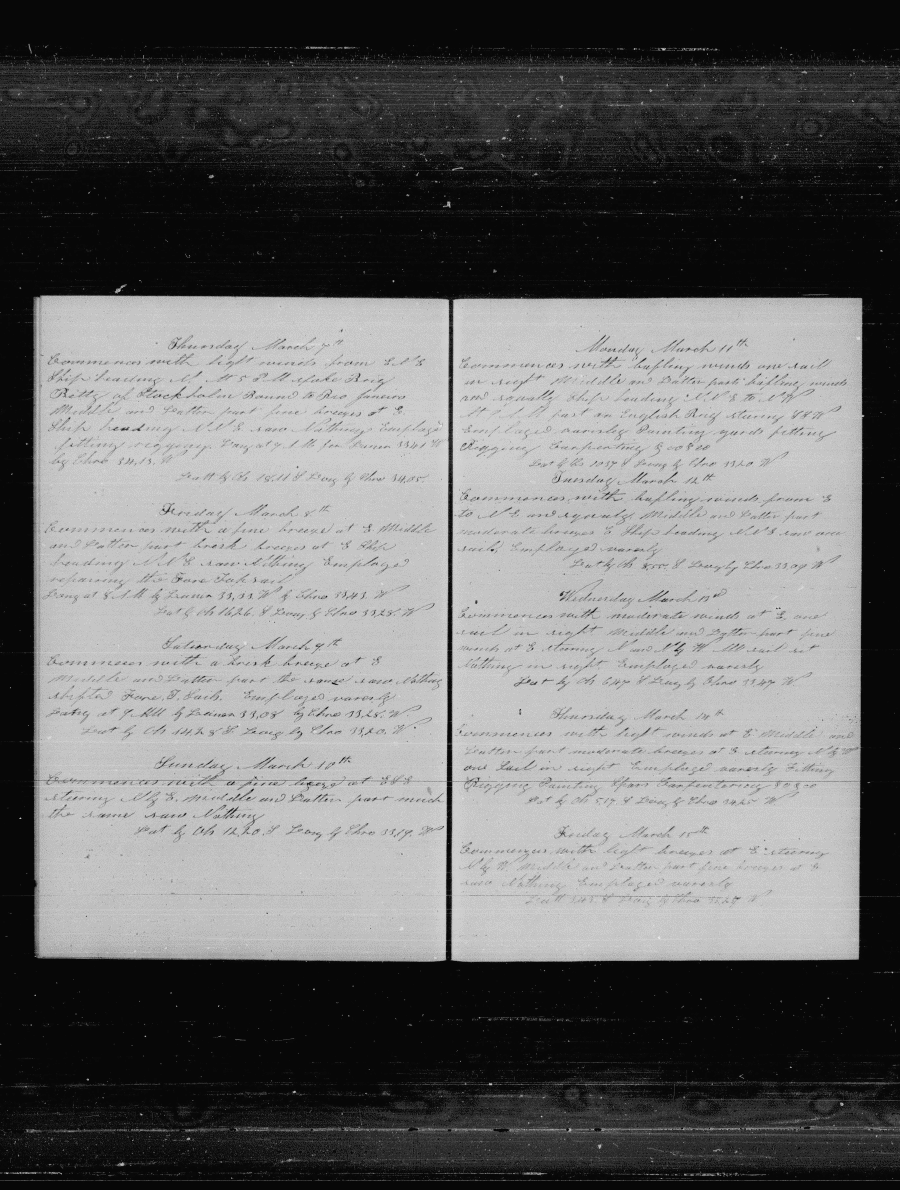 Thursday March 7th
Commences with light winds from E.N.E
Ship heading N. At 5 P.M spoke Brig
of Stockholm Bound to Rio Janeiro
Middle and Latter part fine breezes at E.
Ship heading N.N.E saw Nothing Employed
fitting rigging Long at 9 A.M per Lunar 33.40 W
by Chro 34.13. W
Latt by Ob 18.11 S Long by Chro 34.05.
Friday March 8th
Commences with a fine breeze at E Middle
and Latter part brisk breezes at E Ship
heading N.N.E. saw Nothing Employed
repairing the Fore Topsail
Long at 8 A.M by Lunar 33,33 W by Chro 33.43. W
Lat by Ob 16.26. S Long by Chro 33.28. W
Saturday March 9th
Commences with a brisk breeze at E
Middle and Latter part the same saw Nothing
shifted Fore. T. Sail. Employed varerly
Long at 9 AM by Lunar 33,08 by Chro 33.28. W.
Lat by Ob 14.28 S Long by Chro 33.20. W.
Sunday March 10th
Commences with a fine breeze at ESE
stering N by E. Middle and Latter part much
the same saw Nothing
Lat by Ob 12.20 S Long by Chro 33.19. W
Monday March 11th
Commences with bafling winds one sail
in sight Middle and Latter part bafling winds
and squally Ship heading N.N.E to N.W
At P.M past an English Brig stering SSW
Employed varerly Painting yards fitting
Rigging Carpenting &c
Lat by Ob 10.37 S Long by Chro 33.20 W
Tuesday March 12th
Commences with bafling winds from E
to N.E and squaly Middle and Latter part
moderate breezes E Ship heading N.N.E saw one
sail. Employed varerly
Lat by Ob 8.55. S Long by Chro 33.09 W
Wednesday March 13d
Commences with moderate winds at E. one
sail in sight Middle and Latter part fine
winds at E stering N and N by W All sail set
Nothing in sight Employed varerly
Lat by Ob 6.47 S Long by Chro 33.47 W
Thursday March 14th
Commences with light winds at E Middle and
Latter part moderate breezes at E stering N by W
one Sail in sight Employed varerly Fitting
Rigging Painting Spars Carpentering &c
Lat by Ob 5.17. S Long by Chro 34.20 W
Friday March 15th
Commences with light breezes at E stering
N by W Middle and Latter part fine breezes at E
saw Nothing Employed varerly
Latt S Long by Chro W